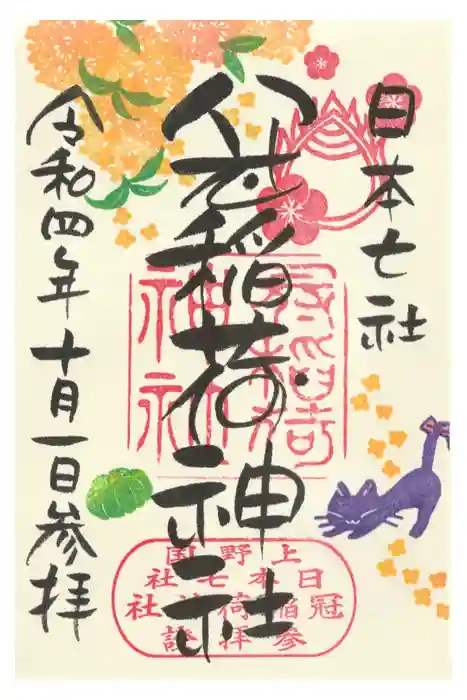 日本七社
冠稲荷神社
令和四年十月一日参拝
神社
上野国
日本七社
冠稲荷神社
参拝證